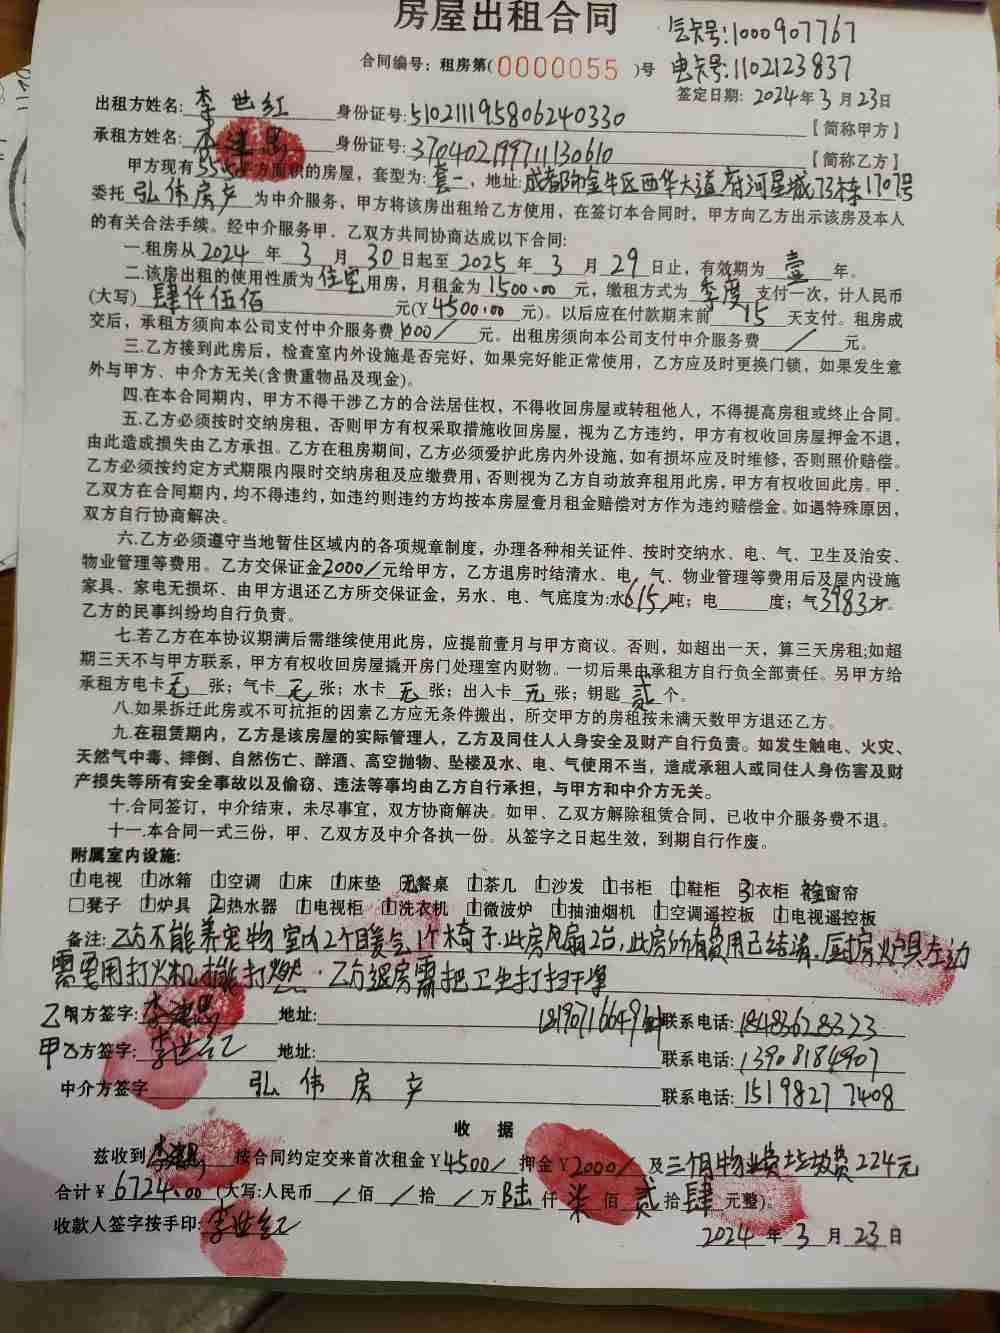 房屋出租合同
气卡号:1000907767
合同编号：租房第(0000055)号
电卡号:1102123837
签定日期: 2024年3月23日
出租方姓名: 李世红 身份证号: 510211195806240330 【简称甲方】
承租方姓名: 李建 身份证号: 370402199711130610 【简称乙方】
甲方现有55平方面积的房屋，套型为: 套一，地址: 成都市金牛区西华大道府河星城73栋1707号
委托 弘伟房产 为中介服务，甲方将该房出租给乙方使用，在签订本合同时，甲方向乙方出示该房及本人
的有关合法手续。经中介服务甲、乙双方共同协商达成以下合同:
一.租房从2024年3月30日起至2025年3月29日止，有效期为 壹 年。
二.该房出租的使用性质为住宅用房，月租金为1500.00元，缴租方式为 季度 支付一次，计人民币
(大写) 肆仟伍佰 元(¥4500.00元)。以后应在付款期末前 15 天支付。租房成
交后，承租方须向本公司支付中介服务费1000/元。出租房须向本公司支付中介服务费 / 元。
三.乙方接到此房后，检查室内外设施是否完好，如果完好能正常使用，乙方应及时更换门锁，如果发生意
外与甲方、中介方无关(含贵重物品及现金)。
四.在本合同期内，甲方不得干涉乙方的合法居住权，不得收回房屋或转租他人，不得提高房租或终止合同。
五.乙方必须按时交纳房租，否则甲方有权采取措施收回房屋，视为乙方违约，甲方有权收回房屋押金不退，
由此造成损失由乙方承担。乙方在租房期间，乙方必须爱护此房内外设施，如有损坏应及时维修，否则照价赔偿。
乙方必须按约定方式期限内限时交纳房租及应缴费用，否则视为乙方自动放弃租用此房，甲方有权收回此房。甲.
乙双方在合同期内，均不得违约，如违约则违约方均按本房屋壹月租金赔偿对方作为违约赔偿金。如遇特殊原因，
双方自行协商解决。
六.乙方必须遵守当地暂住区域内的各项规章制度，办理各种相关证件、按时交纳水、电、气、卫生及治安、
物业管理等费用。乙方交保证金2000/元给甲方，乙方退房时结清水、电、气、物业管理等费用后及屋内设施
家具、家电无损坏、由甲方退还乙方所交保证金，另水、电、气底度为:水615吨；电 度；气3983方。
乙方的民事纠纷均自行负责。
七.若乙方在本协议期满后需继续使用此房，应提前壹月与甲方商议。否则，如超出一天，算三天房租;如超
期三天不与甲方联系，甲方有权收回房屋撬开房门处理室内财物。一切后果由承租方自行负全部责任。另甲方给
承租方电卡 无 张；气卡 无 张；水卡 无 张；出入卡 无 张；钥匙 贰 个。
八.如果拆迁此房或不可抗拒的因素乙方应无条件搬出，所交甲方的房租按未满天数甲方退还乙方。
九.在租赁期内，乙方是该房屋的实际管理人，乙方及同住人人身安全及财产自行负责。如发生触电、火灾、
天然气中毒、摔倒、自然伤亡、醉酒、高空抛物、坠楼及水、电、气使用不当，造成承租人或同住人身伤害及财
产损失等所有安全事故以及偷窃、违法等事均由乙方自行承担，与甲方和中介方无关。
十.合同签订，中介结束，未尽事宜，双方协商解决。如甲、乙双方解除租赁合同，已收中介服务费不退。
十一.本合同一式三份，甲、乙双方及中介各执一份。从签字之日起生效，到期自行作废。
附属室内设施:
1电视 1冰箱 1空调 1床 1床垫 无餐桌 1茶几 1沙发 1书柜 1鞋柜 3衣柜 窗帘
□凳子 1炉具 2热水器 1电视柜 1洗衣机 1微波炉 1抽油烟机 1空调遥控板 1电视遥控板
备注: 乙方不能养宠物 室内2个暖气 1个椅子.此房风扇2台,此房所有费用已结清.厨房炉具左边
需要用打火机 打燃. 乙方退房需把卫生打扫干净
乙方签字: 李建 地址: 联系电话: 18483628323
甲方签字: 李世红 地址: 联系电话: 13908184907
中介方签字 弘伟房产 联系电话: 15198277408
收 据
兹收到 李建 按合同约定交来首次租金¥4500/押金¥2000/及三个月物业费垃圾费224元
合计¥6724.00(大写:人民币 / 佰 / 拾 / 万 陆 仟 柒 佰 贰 拾 肆 元整)。
收款人签字按手印: 李世红
2024年3月23日